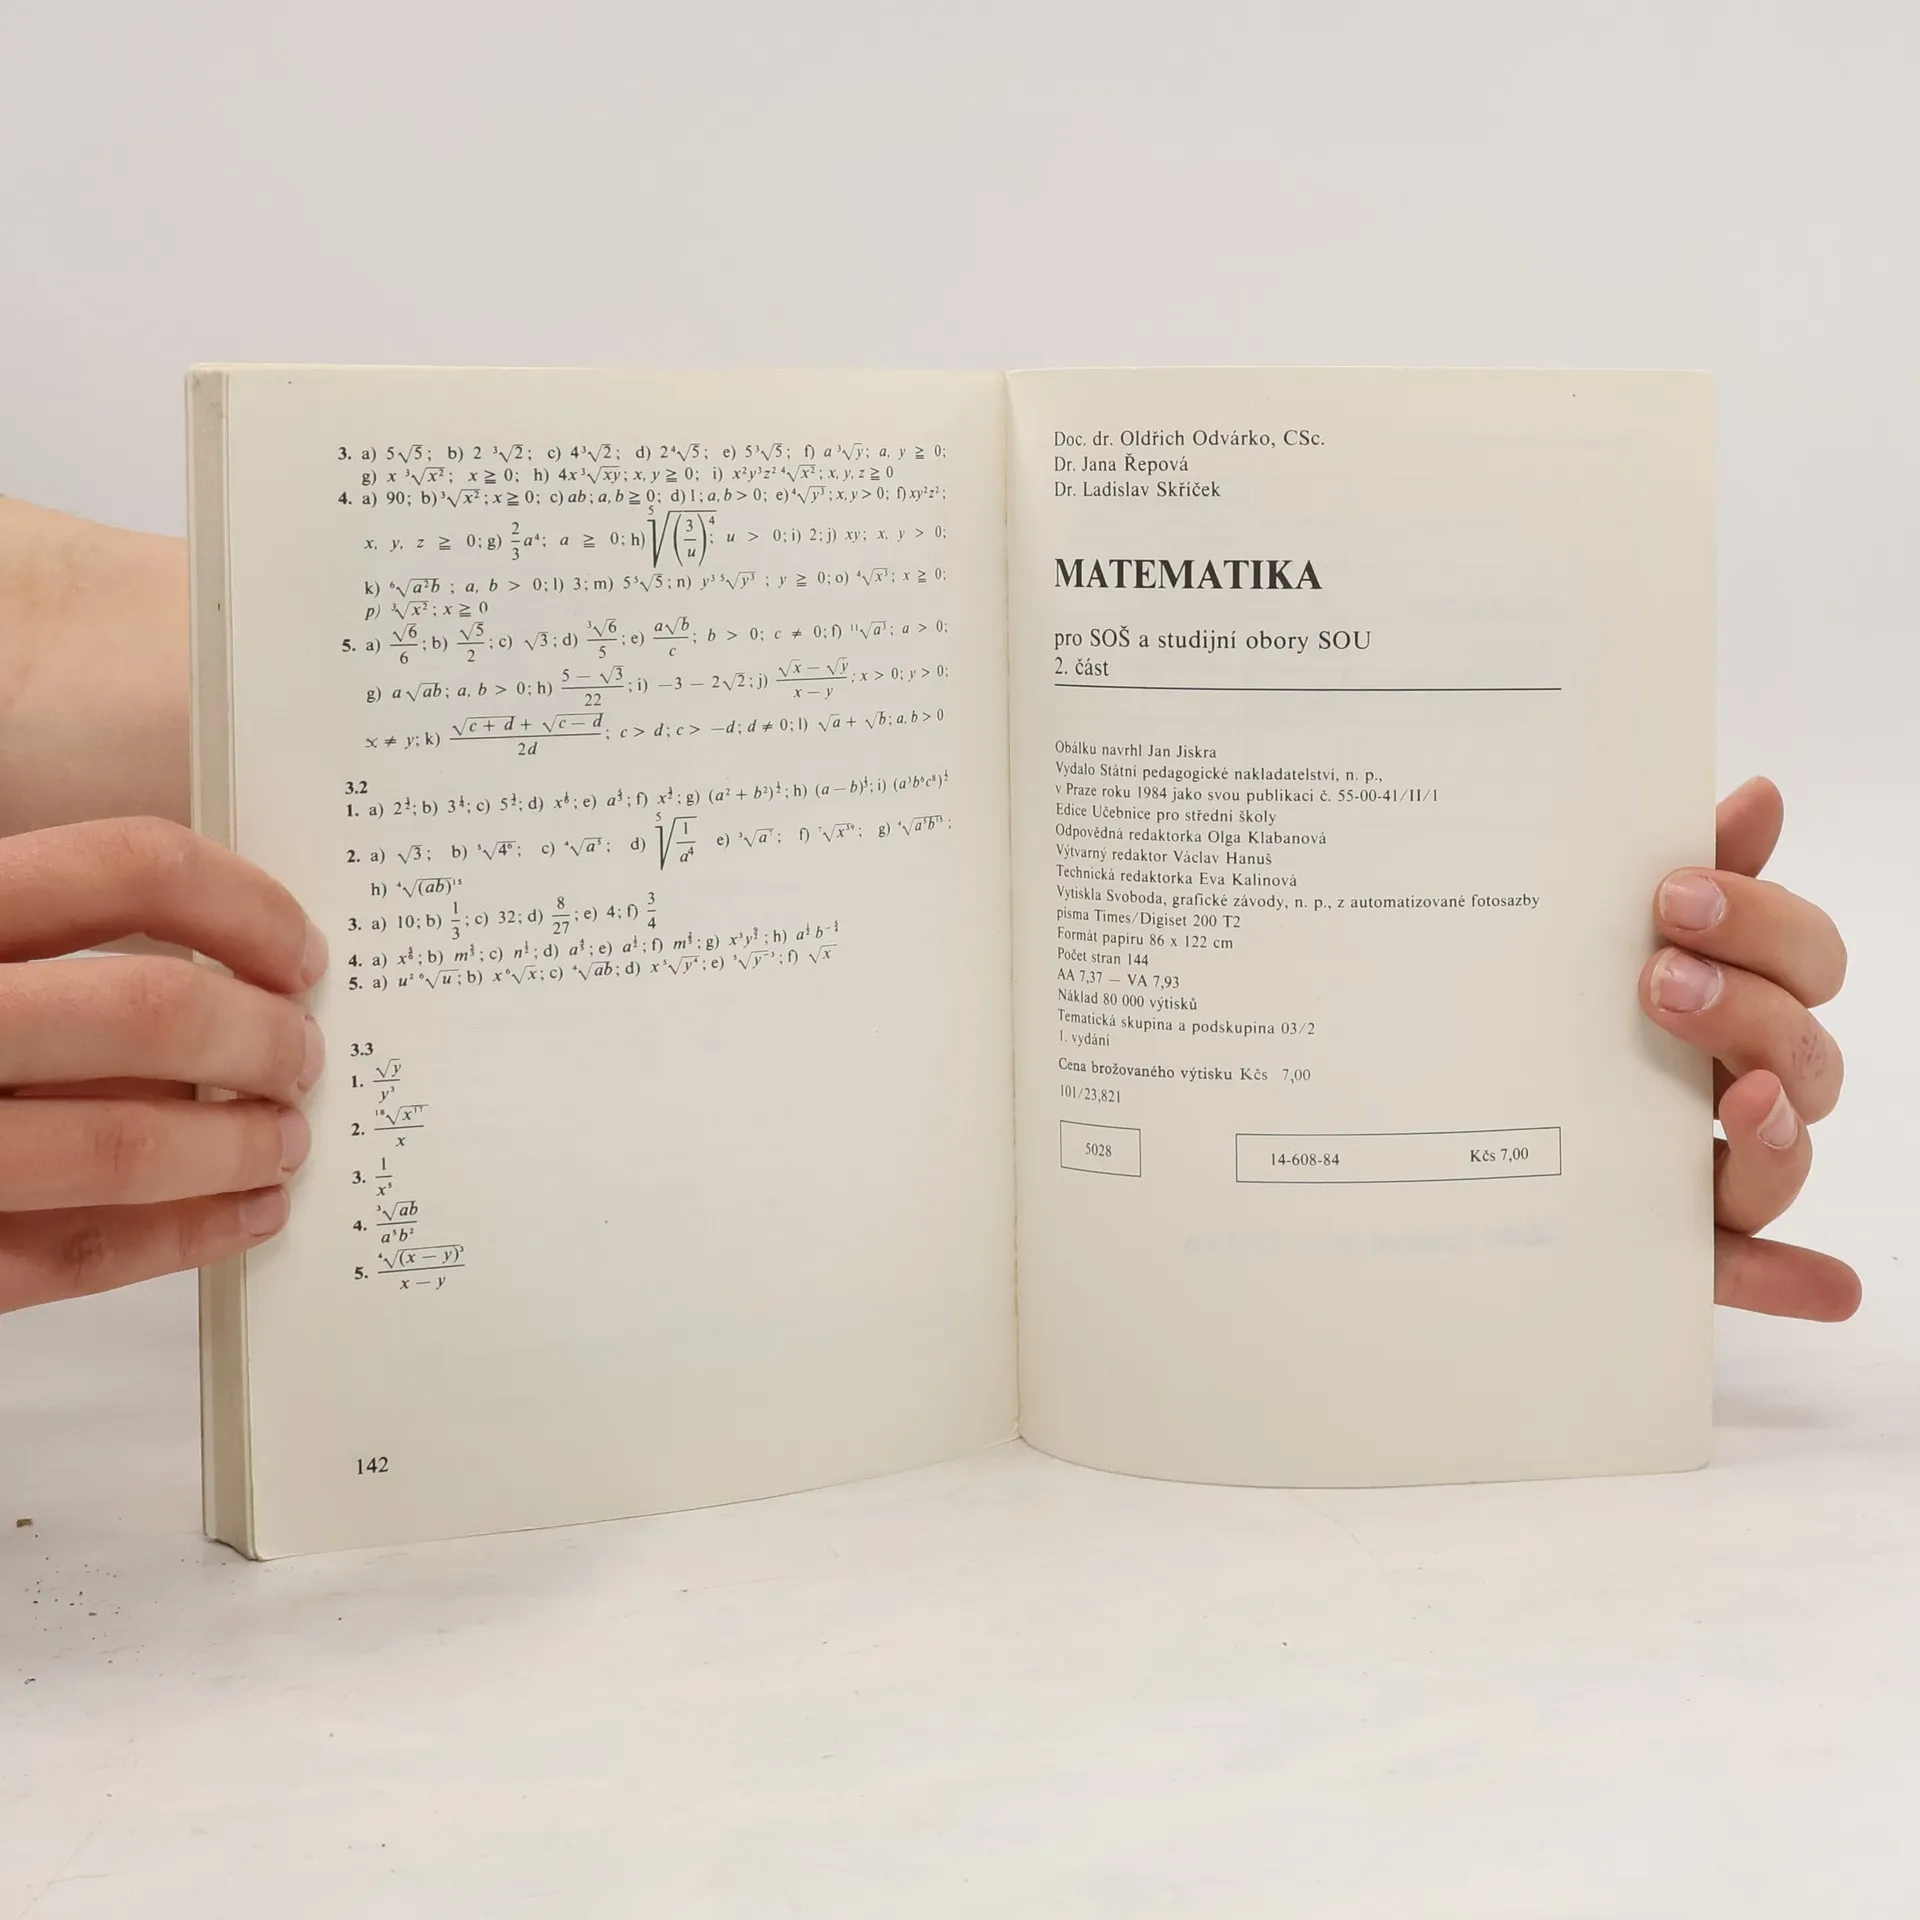 3. a) 5√5; b) 2 ³√2; c) 4³√2; d) 2⁴√5; e) 5³√5; f) a ³√y; a, y ≧ 0;
g) x ³√x²; x ≧ 0; h) 4x³√xy; x, y ≧ 0; i) x²y³z² ⁴√x²; x, y, z ≧ 0
4. a) 90; b) ³√x²; x ≧ 0; c) ab; a, b ≧ 0; d) 1; a, b > 0; e) ⁴√y³; x, y > 0; f) xy²z²;
x, y, z ≧ 0; g) 2/3 a⁴; a ≧ 0; h) ⁵√(3/u)⁴; u > 0; i) 2; j) xy; x, y > 0;
k) ⁶√a²b; a, b > 0; l) 3; m) 5⁵√5; n) y³ ⁵√y³; y ≧ 0; o) ⁴√x³; x ≧ 0;
p) ³√x²; x ≧ 0
5. a) √6/6; b) √5/2; c) √3; d) ³√6/5; e) a√b/c; b > 0; c ≠ 0; f) ¹¹√a³; a > 0;
g) a√ab; a, b > 0; h) (5 − √3)/22; i) −3 − 2√2; j) (√x − √y)/(x − y); x > 0; y > 0;
x ≠ y; k) (√c + d + √c − d)/2d; c > d; c > −d; d ≠ 0; l) √a + √b; a, b > 0
3.2
1. a) b) c) d) e) f) g) h) i)
2. a) √3; b) ⁵√4⁶; c) ⁴√a⁵; d) ⁵√1/a⁴ e) f) g)
h) ⁴√(ab)¹⁵
3. a) 10; b) 1/3; c) 32; d) 8/27; e) 4; f) 3/4
4. a) b) c) d) e) f) g) h)
5. a) u² ⁶√u; b) x⁶√x; c) ⁴√ab; d) x⁵√y⁴; e) f) √x
3.3
1. √y/y³
2. ¹⁸√x¹⁷/x
3. 1/x⁵
4. ³√ab/a³b²
5. ⁴√(x − y)³/x − y
142
Doc. dr. Oldřich Odvárko, CSc.
Dr. Jana Řepová
Dr. Ladislav Skříček
MATEMATIKA
pro SOŠ a studijní obory SOU
2. část
Obálku navrhl Jan Jiskra
Vydalo Státní pedagogické nakladatelství, n. p.,
v Praze roku 1984 jako svou publikaci č. 55-00-41/II/1
Edice Učebnice pro střední školy
Odpovědná redaktorka Olga Klabanová
Výtvarný redaktor Václav Hanuš
Technická redaktorka Eva Kalinová
Vytiskla Svoboda, grafické závody, n. p., z automatizované fotosazby
písma Times/Digiset 200 T2
Formát papíru 86 x 122 cm
Počet stran 144
AA 7,37 — VA 7,93
Náklad 80 000 výtisků
Tematická skupina a podskupina 03/2
1. vydání
Cena brožovaného výtisku Kčs 7,00
101/23,821
5028
14-608-84 Kčs 7,00